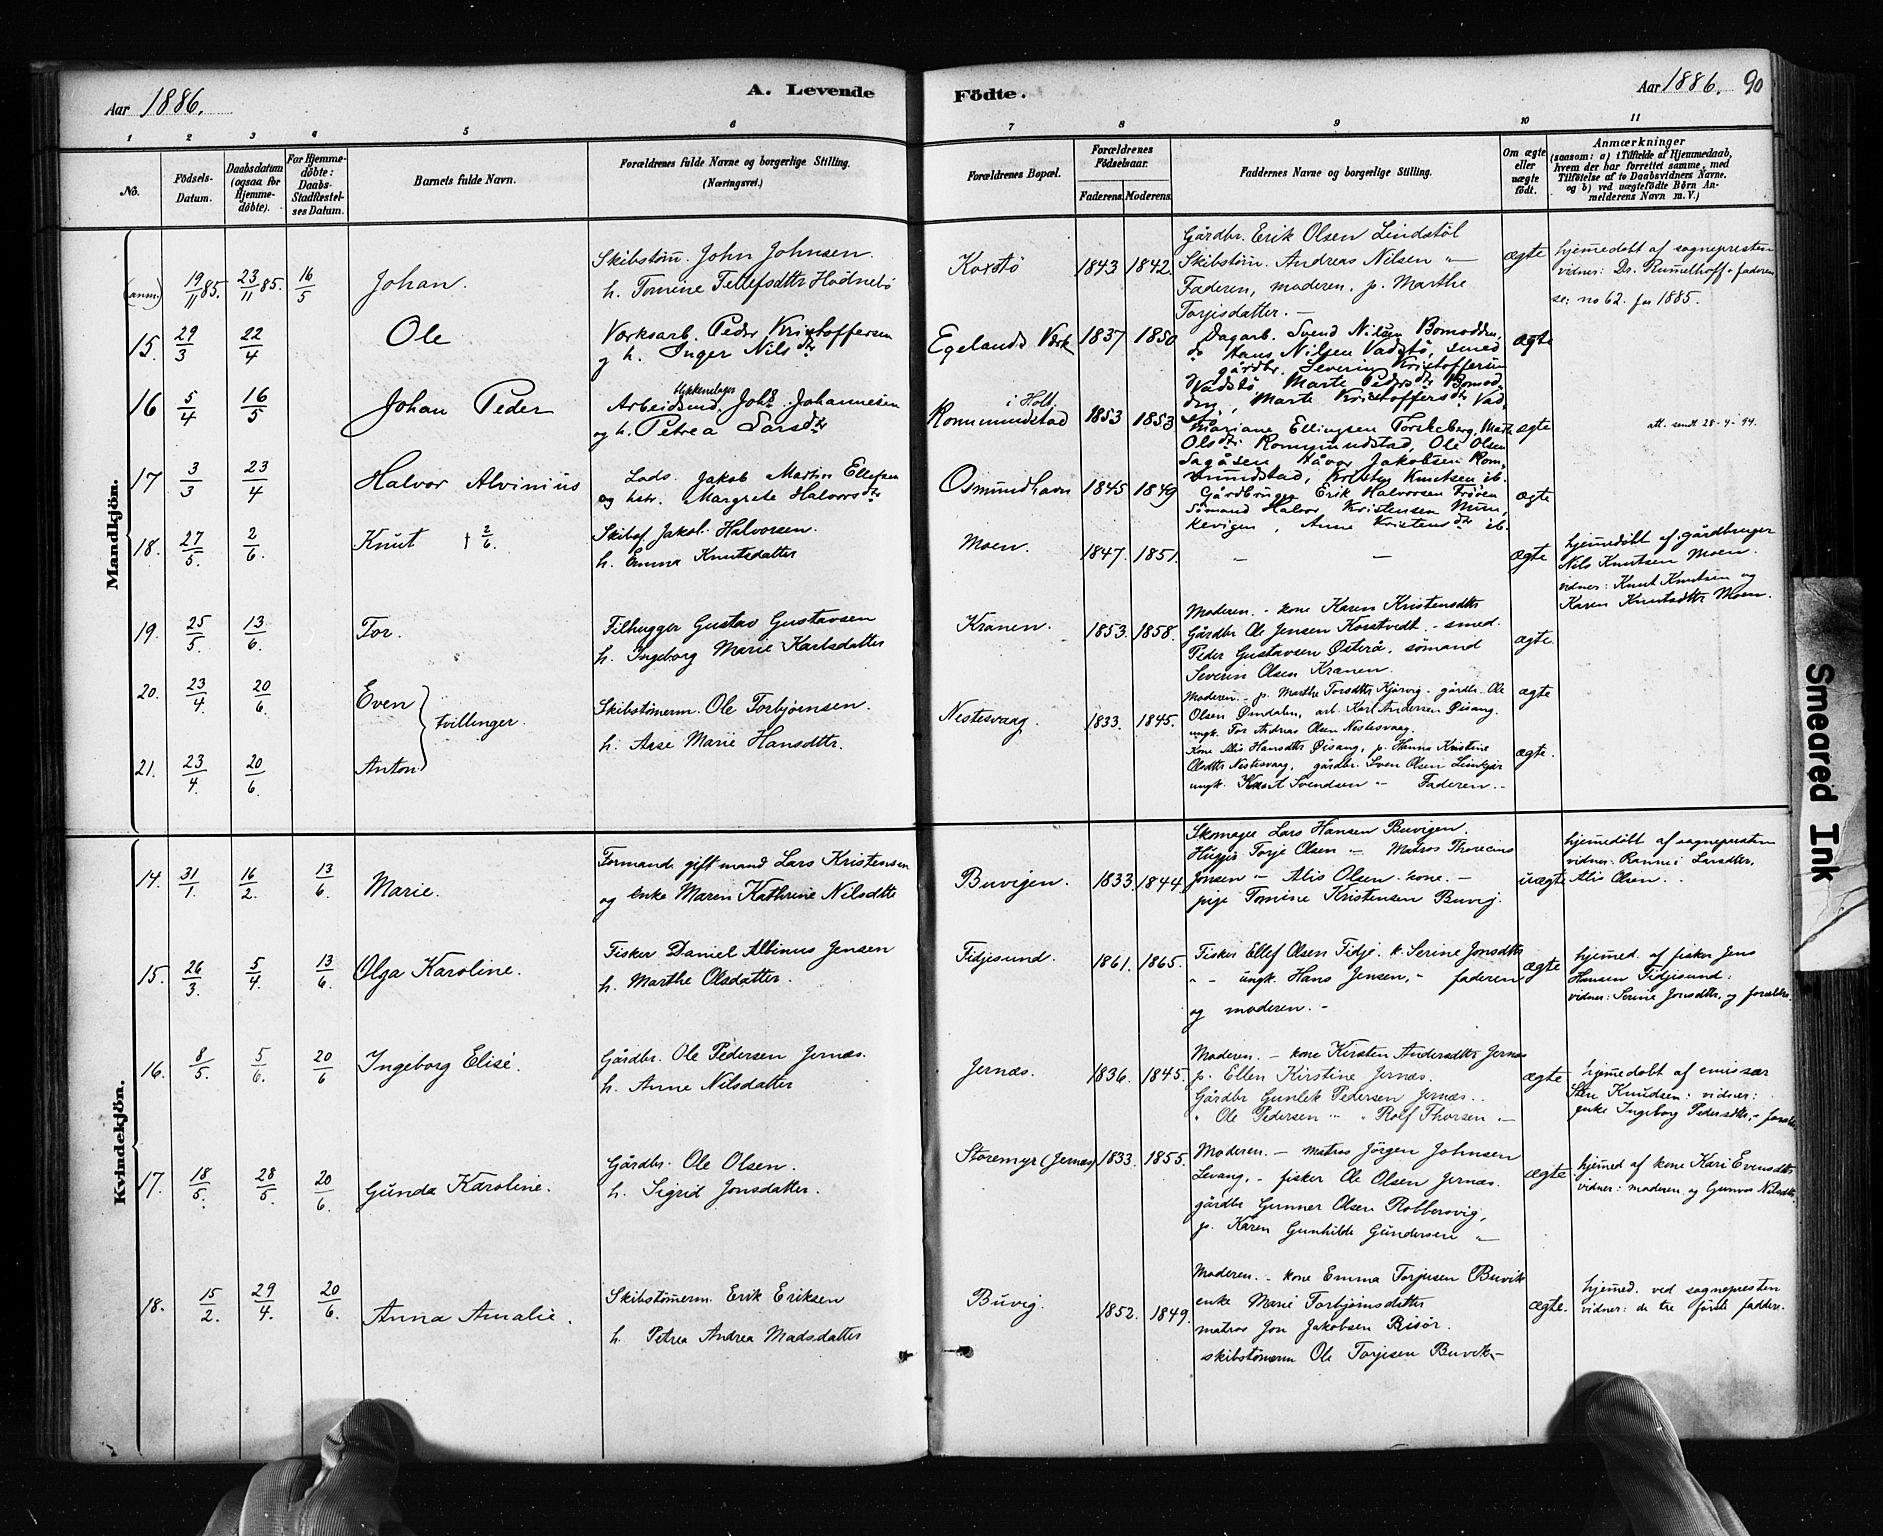 Aar 1886.
A. Levende Födte.
Aar 1886. 90
1 2 3 4 5 6 7 8 9 10 11
No.
Födsels-Datum.
Daabsdatum (ogsaa for Hjemme-döbte).
For Hjemme-döbte: Daabs-Stadfæstel-ses Datum.
Barnets fulde Navn.
Forældrenes fulde Navne og borgerlige Stilling. (Næringsvei.)
Forældrenes Bopæl.
Forældrenes Födselsaar.
Faderens. Moderens.
Faddernes Navne og borgerlige Stilling.
Om ægte eller uægte födt.
Anmærkninger
(saasom: a) i Tilfælde af Hjemmedaab, hvem der har forrettet samme, med Tilföielse af to Daabsvidners Navne. og b) ved uægtefödte Börn An-melderens Navn m. V.)
Mandkjön.
(anm.) 19/11 85. 23/11 85. 16/5 Johan.
Skibstøm. John Johnsen.
h. Tomine Tellefsdtr Hødnebø
Korstø 1843 1842.
Gårdbr. Erik Olsen Lindstøl
Skibstøm. Andreas Nilsen "
Faderen, moderen, p. Marthe
Torjisdatter. –
ægte
hjemedøbt af sognepresten
vidner: Ds. Rumelhoff + faderen
se: no 62. for 1885.
15. 29/3 22/4 Ole
Værksarb. Peder Kristoffersen
og h. Inger Nilsdtr
Egelands Værk 1837 1850
Dagarb. Svend Nilsen Bomodden,
do Hans Nilsen Vadstø, smed
gårdbr. Severin Kristoffersen
Vadstø, Marte Pedersdtr Bomod-
den, Marte Kristoffersdtr Vad-
stø
ægte
16 5/4 16/5 Johan Peder
Arbeidsmd. Johs Johannesen
og h. Petrea Larsdtr
i Holt.
Rommundstad 1853 1853
Mariane Ellingsen Torskeberg, Mathe
Olsdtr Rommundstad, Ole Olsen
Sagåsen Håvor Jakobsen Rom-
mundstad, Kristen Knutsen ib.
ægte
att. sendt 28-4-44.
17 3/3 23/4 Halvor Alvinius
Lods. Jakob Martin Ellefsen
og hstr. Margrete Halvorsdtr
Osmundhavn 1845 1849
Gårdbruger Erik Halvorsen Frøen
Sømand Halvor Kristensen Mun-
kevigen, Anne Kristensdtr ib.
ægte
18. 27/5. 2/6. Knut † 2/6.
Skibsf. Jakob Halvorsen.
h. Emma Knutsdatter
Moen. 1847. 1851. – –
ægte
hjemedøbt af gårdbruger
Nils Knutsen Moen.
vidner: Knut Knutsen og
Karen Knutsdtr Moen.
19. 25/5. 13/6. Tor.
Filhugger Gustav Gustavsen
h. Ingeborg Marie Karlsdatter
Kranen. 1853. 1858.
Moderen. – kone Karen Kristensdtr
Gårdbr Ole Jensen Korstvedt. – smed.
Peder Gustavsen Østerå, sømand
Severin Olsen Kranen.
ægte.
20. 23/4. 20/6. Even
21. 23/4. 20/6. Anton
tvillinger.
Skibstømerm. Ole Torbjørnsen.
h. Aase Marie Hansdtr.
Nestesvaag. 1833. 1845.
Moderen. – p. Marthe Torsdtr Kjørvig – gårdbr. Ole
Olsen Omdalen, arb. Karl Andersen Øisang.
ungk. Tor Andreas Olsen Nestesvaag.
Kone Alis Hansdtr Øisang, p. Hanna Kristine
Olsdtr Nestesvaag, gårdbr. Sven Olsen
ungk. Knut Svendsen " Faderen. –
ægte
ægte.
Kvindekjön.
14. 31/1. 16/2. 13/6 Marie.
Formand gift mand Lars Kristensen
og enke Maren Kathrine Nilsdtr
Buvigen. 1833. 1844.
Skomager Lars Hansen Buvigen.
Torje Olsen " Matros
Jonsen " Alis Olsen kone. –
pige Tomine Kristensen Buvig.
uægte
hjemedøbt af sognepresten
vidner: Larsdtr,
Alis Olsen.
15. 26/3. 5/4. 13/6. Olga Karoline.
Fisker Daniel Albinus Jensen
h. Marthe Olsdatter.
Tidjesund. 1861. 1865.
Fisker Ellef Olsen Tidje. k. Serine Jonsdtr
" – ungk. Hans Jensen, – faderen
og moderen. –
ægte
hjemed. af fisker Jens
Hansen Tidjesund:
vidner: Serine Jonsdtr, og forældre.
16. 8/5. 5/6. 20/6 Ingeborg Elise.
Gårdbr. Ole Pedersen Jernæs.
h. Anne Nilsdatter
Jernæs. 1836. 1845.
Moderen. – kone Kirsten Andersdtr Jernæs
p. Ellen Kirstine Jernæs.
Gårdbr Gunlek Pedersen Jernæs.
" Ole Pedersen " " Rolf Thorsen "
ægte
hjemedøbt af emissær
Sten Knudsen: vidner:
enke Ingeborg Pedersdtr, – forældre
17. 18/5. 28/5 20/6. Gunda Karoline.
Gårdbr. Ole Olsen.
h. Sigrid Jonsdatter.
Storemyr (Jernæs) 1833. 1855.
Moderen. – matros Jørgen Johnsen
Levang, – fisker Ole Olsen Jernæs.
gårdbr Gunner Olsen Robbersvig,
p. Karen Gunhilde Gundersen "
ægte
hjemed af kone Kari Evensdtr
vidner: moderen og Gunvor Nilsdtr.
18. 15/2. 29/4. 20/6. Anna Amalie.
Skibstømerm. Erik Eriksen
h. Petrea Andrea Madsdatter
Buvig. 1852. 1849.
Moderen. – kone Emma Torjusen Buvik
enke Marie Torbjørnsdatter
matros Jon Jakobsen Risør.
skibstømerm Ole Torjesen Buvik –
ægte.
hjemed. ved sognepresten
vidner: de tre første faddere.
Smeared Ink